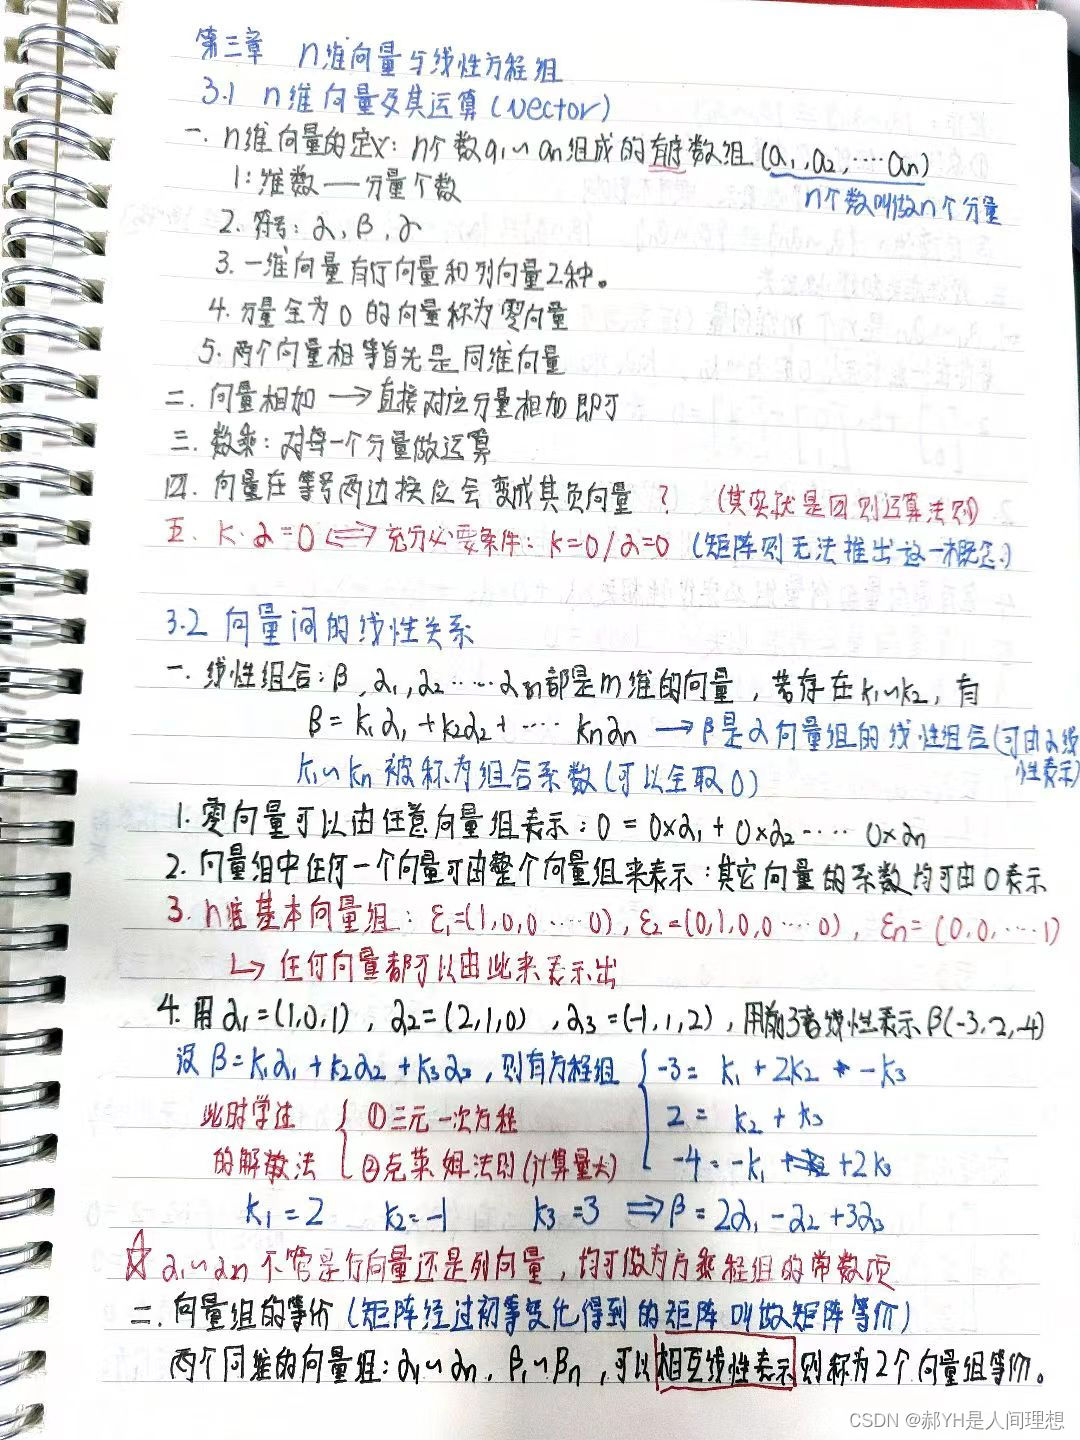 第三章 n维向量与线性方程组
3.1 n维向量及其运算(vector)
一. n维向量的定义: n个数a₁~aₙ组成的有序数组 (a₁,a₂,…aₙ)
n个数叫做n个分量
1: 维数——分量个数
2. 符号: α, β, γ
3. 一维向量有行向量和列向量2种。
4. 分量全为0的向量称为零向量
5. 两个向量相等首先是同维向量
二. 向量相加 → 直接对应分量相加即可
三. 数乘: 对每一个分量做运算
四. 向量在等号两边换位会变成其负向量 ? (其实就是四则运算法则)
五. k·α=0 ⟺ 充分必要条件: k=0/α=0 (矩阵则无法推出这一概念.)
3.2 向量间的线性关系
一. 线性组合: β, α₁, α₂……αₙ都是m维的向量, 若存在k₁~k₂, 有
β = k₁α₁ + k₂α₂ + …… kₙαₙ → β是α向量组的线性组合(可由α线性表示)
k₁~kₙ 被称为组合系数(可以全取0)
1. 零向量可以由任意向量组表示: 0 = 0×α₁ + 0×α₂ -…… 0×αₙ
2. 向量组中任何一个向量可由整个向量组来表示: 其它向量的系数均可由0表示
3. n维基本向量组: ε₁=(1,0,0……0), ε₂=(0,1,0,0……0), εₙ=(0,0,……1)
↳ 任何向量都可以由此来表示出
4. 用α₁=(1,0,1), α₂=(2,1,0), α₃=(-1,1,2), 用前3者线性表示β(-3,2,-4)
设β=k₁α₁+k₂α₂+k₃α₃, 则有方程组 { -3= k₁+2k₂ -k₃
此时学过 { ①三元一次方程 2= k₂+k₃
的解教法 ②克莱姆法则(计算量大) -4=-k₁ +2k₃
k₁=2 k₂=-1 k₃=3 ⟹ β=2α₁-α₂+3α₃
☆ α₁~αₙ不管是行向量还是列向量, 均可做为方乘程组的常数项
二. 向量组的等价 (矩阵经过初等变化得到的矩阵叫做矩阵等价)
两个同维的向量组: α₁~αₙ, β₁~βₙ, 可以相互线性表示则称为2个向量组等价。
CSDN @郝YH是人间理想